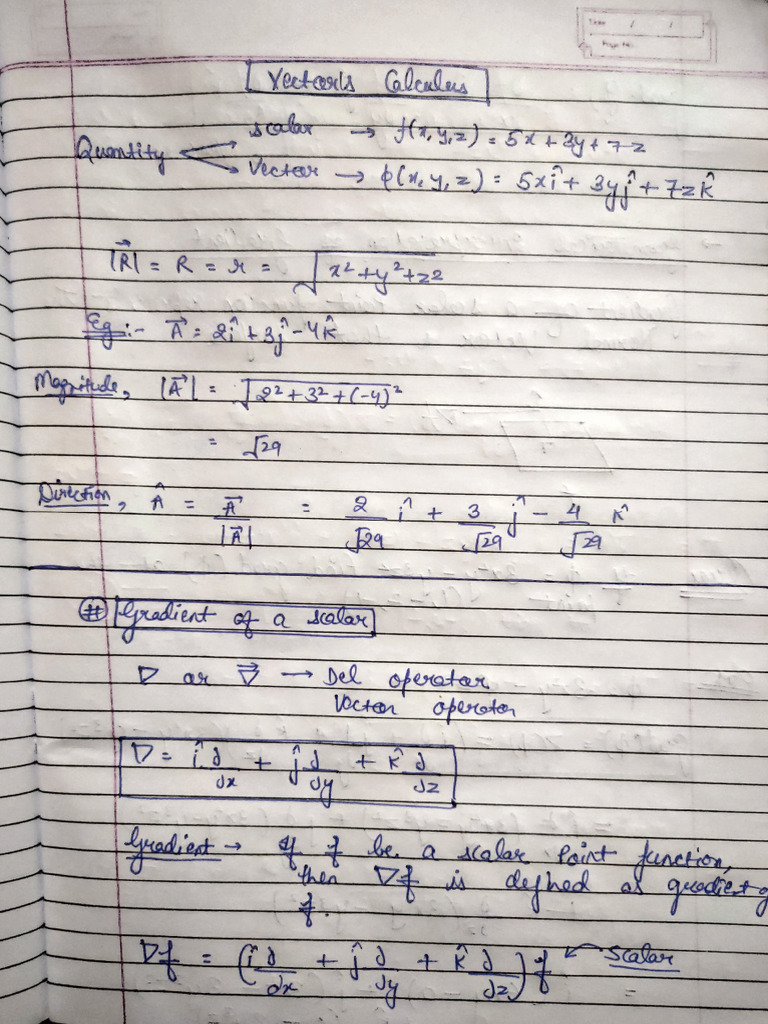 Vector's Calculus
Quantity
scalar → f(x,y,z) = 5x + 3y + 7z
Vector → φ(x,y,z) = 5xî + 3yĵ + 7zk̂
|R⃗| = R = r = √(x² + y² + z²)
Eg:- A⃗ = 2î + 3ĵ - 4k̂
Magnitude, |A⃗| = √(2² + 3² + (-4)²)
= √29
Direction, Â = A⃗/|A⃗| = 2/√29 î + 3/√29 ĵ - 4/√29 k̂
# Gradient of a scalar
∇ or ∇⃗ → Del operator
Vector operator
∇ = î ∂/∂x + ĵ ∂/∂y + k̂ ∂/∂z
Gradient → If f be a scalar Point function,
then ∇f is defined as gradient of
f.
∇f = (î ∂/∂x + ĵ ∂/∂y + k̂ ∂/∂z) f ← Scalar